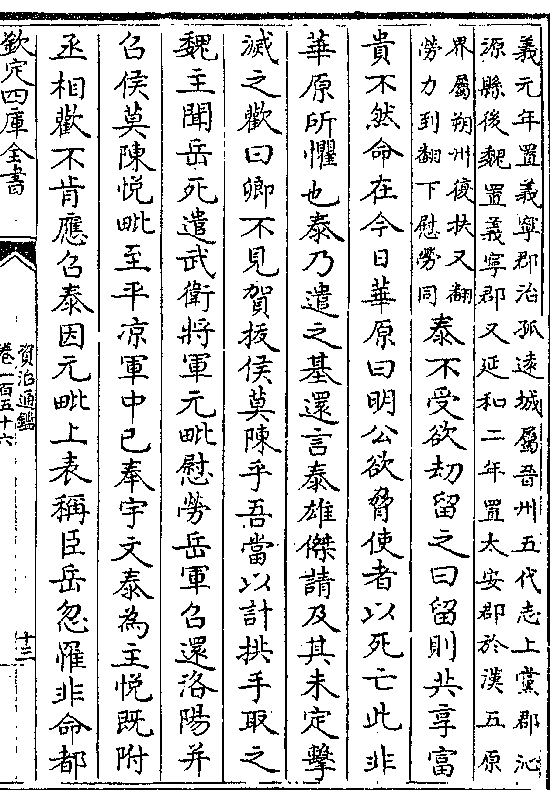 義元年置義寧郡治孤遠城屬晉州五代志上黨郡沁
源縣後魏置義寧郡又延和二年置太安郡於漢五原
界屬朔州復扶又翻
勞力到翻下慰勞同
泰不受欲刼留之曰留則共享富
貴不然命在今日華原曰明公欲脅使者以死亡此非
華原所懼也泰乃遣之基還言泰雄傑請及其未定擊
滅之歡曰卿不見賀拔侯莫陳乎吾當以計拱手取之
魏主聞岳死遣武衛將軍元毗慰勞岳軍召還洛陽并
召侯莫陳悅毗至平凉軍中已奉宇文泰為主悅既附
丞相歡不肯應召泰因元毗上表稱臣岳忽罹非命都
欽定四庫全書
資治通鑑
卷一百五十六
十三